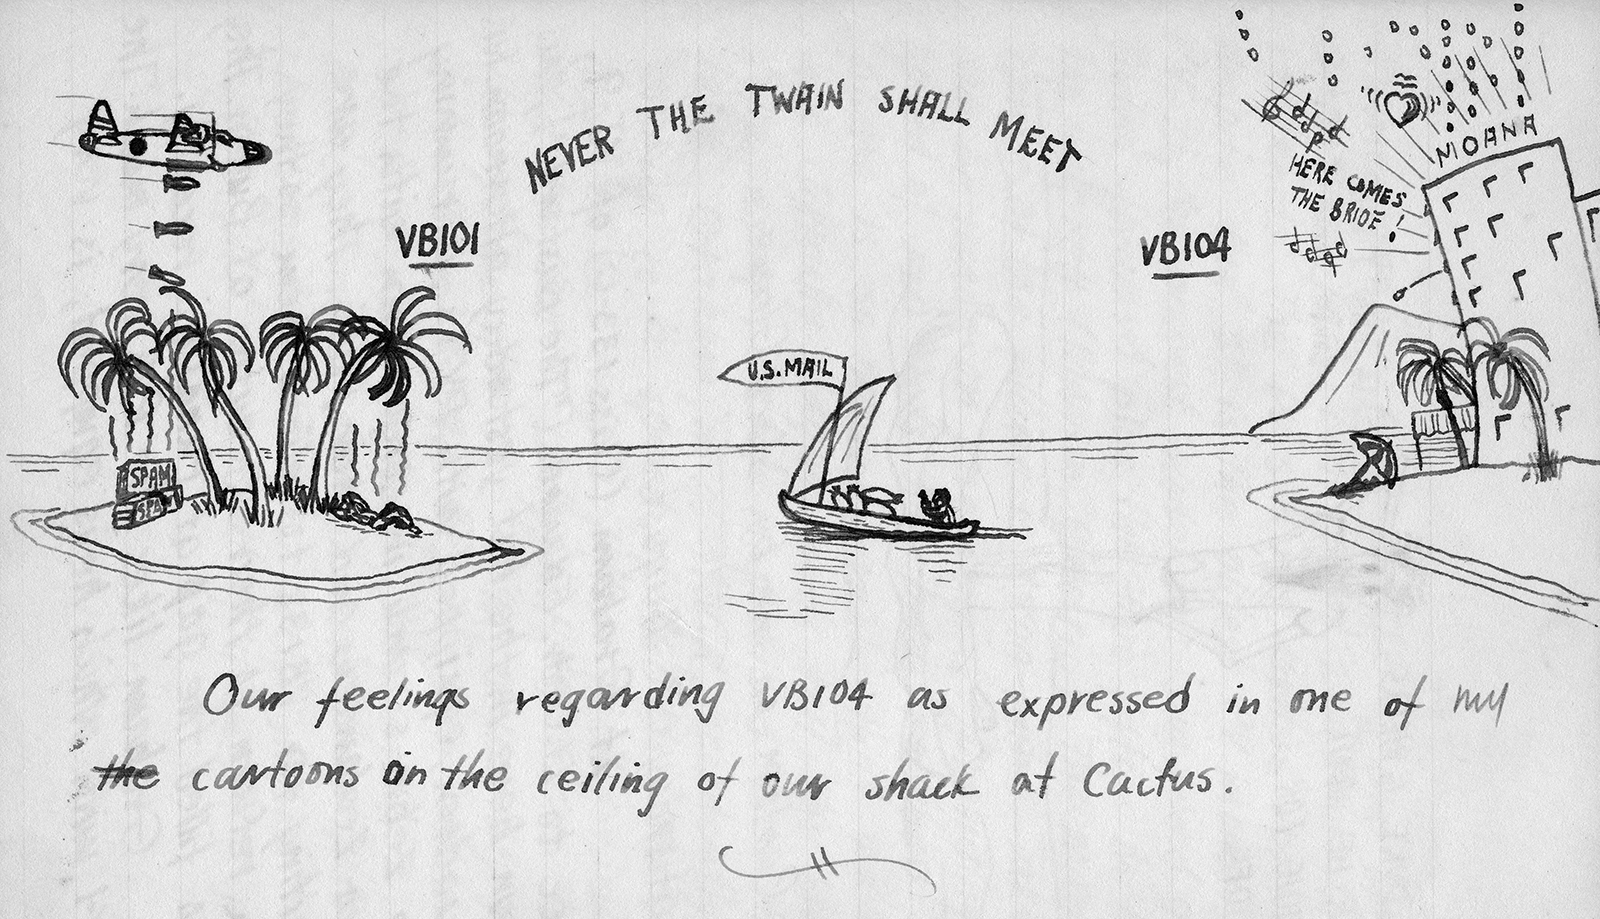 NEVER THE TWAIN SHALL MEET
MOANA
HERE COMES
THE BRIDE!
VB101
VB104
U.S. MAIL
SPAM
SPAM
Our feelings regarding VB104 as expressed in one of my
the cartoons on the ceiling of our shack at Cactus.